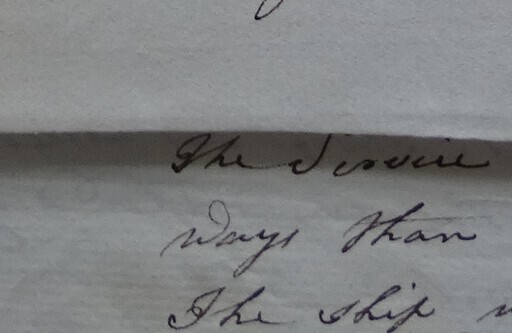 The Service
Ways than
The ship